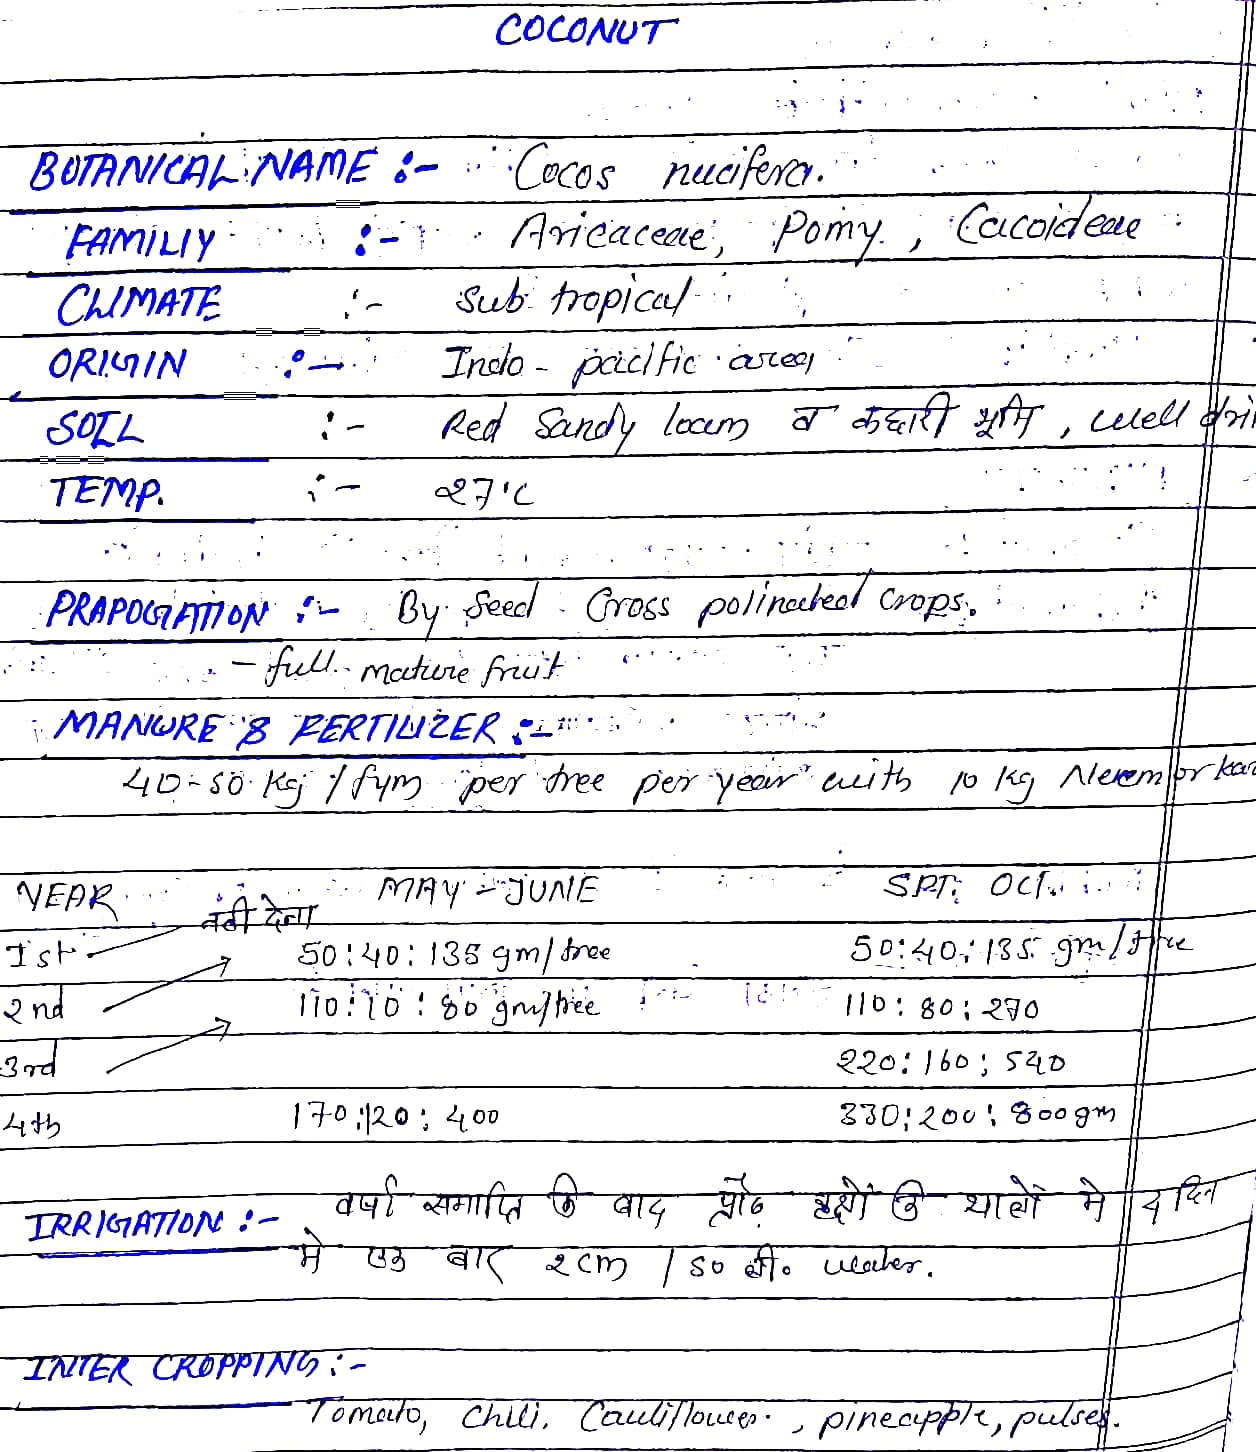 COCONUT
BOTANICAL NAME :- Cocos nucifera.
FAMILIY :- Aricaceae, Pomy, Cacoideae
CLIMATE :- Sub tropical
ORIGIN :- Indo - pacific area
SOIL :- Red Sandy loam व कछारी भूमि, well
TEMP. :- 27°C
PRAPOGATION :- By Seed Cross polinated crops.
- full mature fruit
MANURE & FERTILIZER :-
40-50 Kg / fym per tree per year with 10 kg Neem
YEAR MAY - JUNE SPT. OCT.
नही देना
Ist 50:40:135 gm/tree 50:40:135 gm/tree
2nd 110:70:80 gm/tree 110:80:270
3rd 220:160:540
4th 170:120:400 330:200:800gm
IRRIGATION :- वर्षा समाप्ति के बाद प्रौढ़ वृक्षों के थालों मे दिन
मे एक बार 2cm / 50 ली० water.
INTER CROPPING :-
Tomato, Chili, Cauliflower, pineapple, pulses.